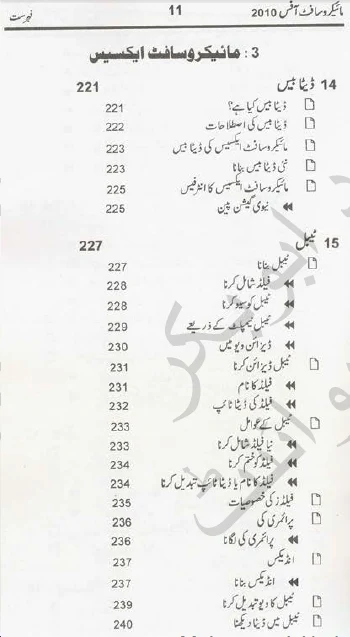 مائیکروسافٹ آفس 2010 11 فہرست
3 : مائیکروسافٹ ایکسیس
14 ڈیٹا بیس 221
ڈیٹا بیس کیا ہے؟ 221
ڈیٹا بیس کی اصطلاحات 222
مائیکروسافٹ ایکسیس کی ڈیٹا بیس 223
نئی ڈیٹا بیس بنانا 223
مائیکروسافٹ ایکسیس کا انٹرفیس 225
نیوی گیشن پین 225
15 ٹیبل 227
ٹیبل بنانا 227
فیلڈ شامل کرنا 228
ٹیبل کو سیو کرنا 228
ٹیبل ٹیمپلٹ کے ذریعے 229
ڈیزائن ویو میں 230
ٹیبل ڈیزائن کرنا 231
فیلڈ کا نام 231
فیلڈ کی ڈیٹا ٹائپ 232
ٹیبل کے عوامل 233
نیا فیلڈ شامل کرنا 233
فیلڈ کو ختم کرنا 234
فیلڈ کا نام یا ڈیٹا ٹائپ تبدیل کرنا 234
فیلڈز کی خصوصیات 235
پرائمری کی 236
پرائمری کی لگانا 236
انڈیکس 237
انڈیکس بنانا 237
ٹیبل کا ویو تبدیل کرنا 239
ٹیبل میں ڈیٹا دیکھنا 240